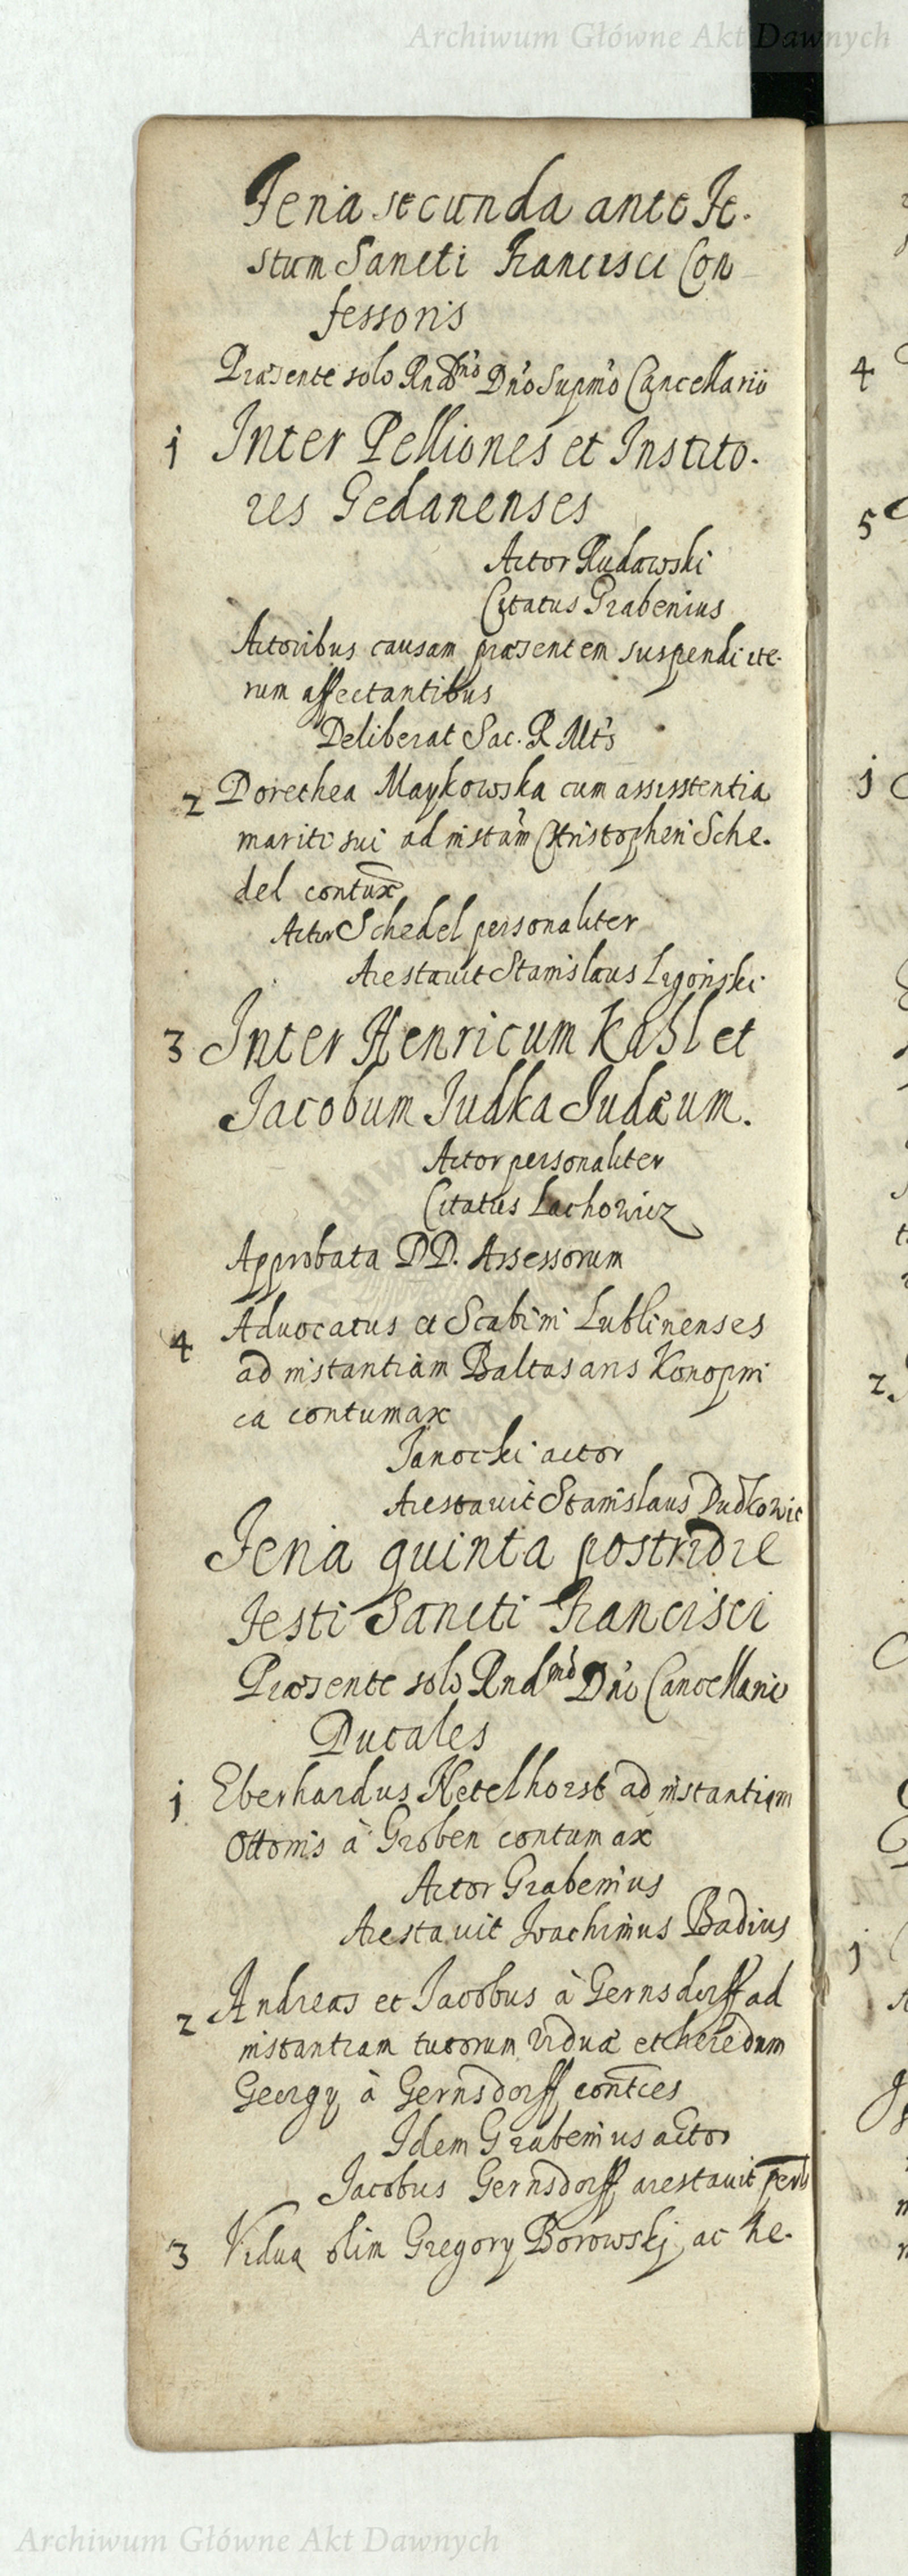 Archiwum Główne Akt Dawnych
Feria secunda ante Fe-
stum Sancti Francisci Con
fessoris
Præsente solo Rndmo Dno Supmo Cancellario
1 Inter Pelliones et Instito-
res Gedanenses
Actor Rudawski
Citatus Grabenius
Actoribus causam præsentem suspendi ite-
rum affectantibus
Deliberat Sac. R Mts
2 Dorethea Maykowska cum assisstentia
mariti sui ad instam Christopheri Sche-
del contux
Actor Schedel personaliter
Arestavit Stanislaus Ligonski
3 Inter Henricum Kahl et
Jacobum Judka Judæum.
Actor personaliter
Citatus Lachowicz
Approbata DD. Assessorum
4 Aduocatus et Scabini Lublinenses
ad instantiam Baltasaris Konopni
ca contumax
Janocki actor
Arestauit Stanislaus Dudkowic
Feria quinta postridie
Festi Sancti Francisci
Præsente solo Rndmo Dno Cancellario
Ducales
1 Eberhardus Netelhorst ad instantiam
Ottonis à Groben contumax
Actor Grabenius
Arestauit Joachimus Badius
2 Andreas et Jacobus à Gernsdorff ad
instantiam tutorum viduæ et heredum
Georgy à Gernsdorff contces
Idem Grabenius actor
Jacobus Gernsdorff arestauit perls
3 Vidua olim Gregory Borowskj ac he-
4
5
1
2
1
Archiwum Główne Akt Dawnych